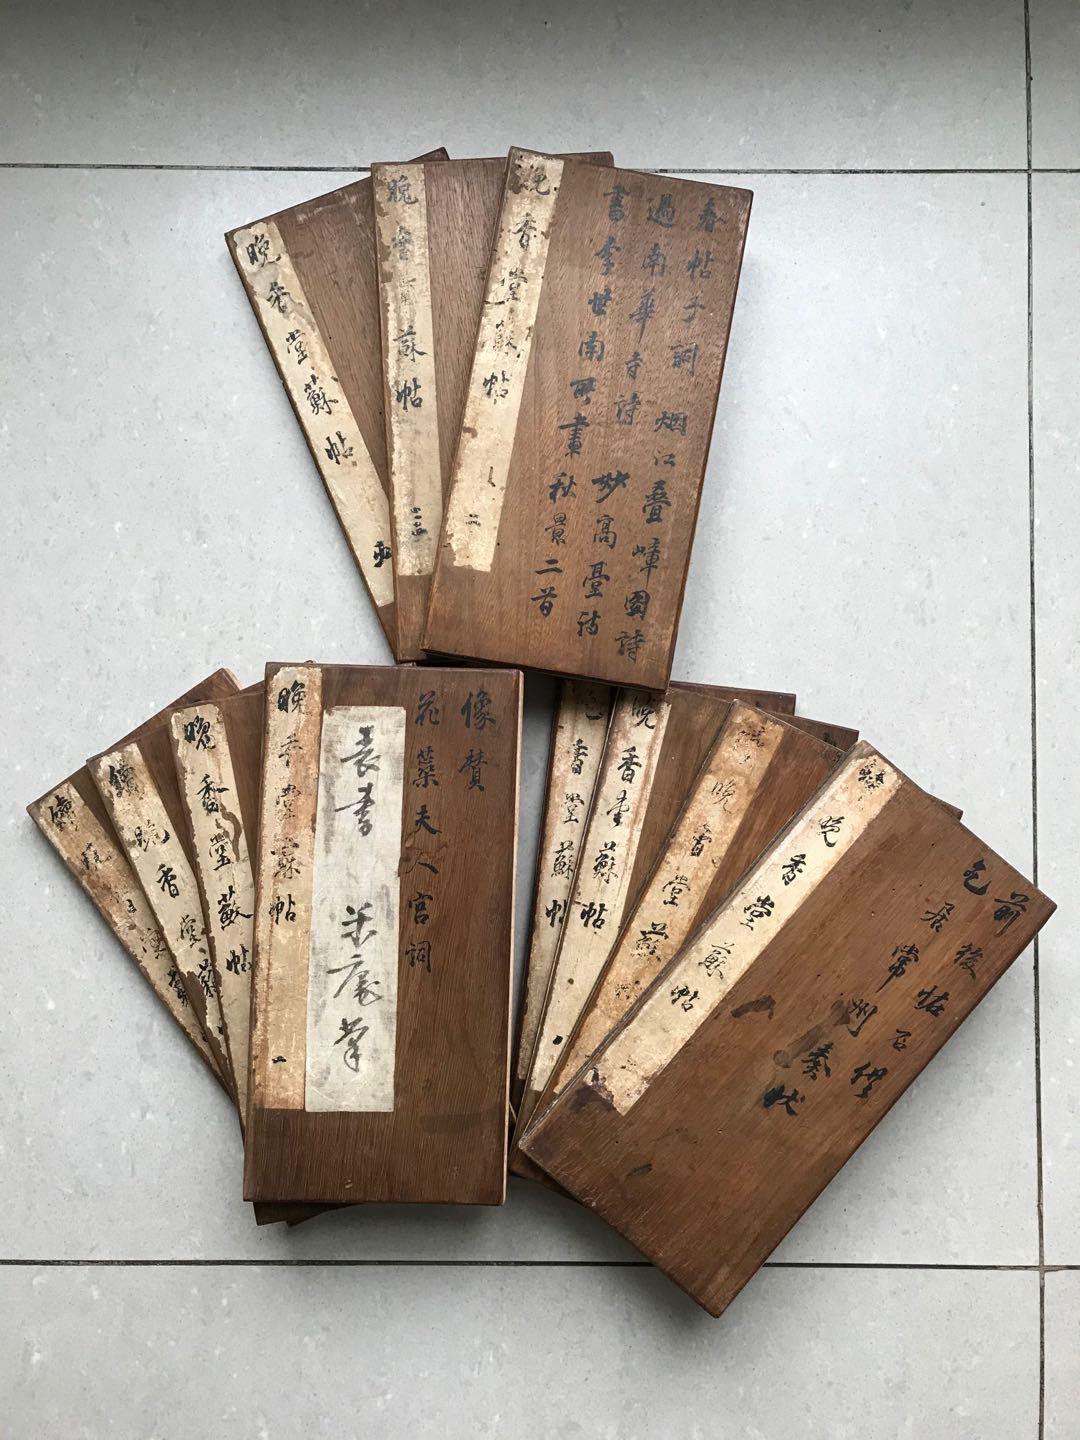 晚香堂蘇帖
晚香堂蘇帖
晚香堂蘇帖
二
春帖子詞 烟江叠嶂圖詩
過南華寺詩 妙高臺詩
書李世南所畫秋景二首
續
續晚香堂蘇
晚香堂蘇帖
晚香堂蘇帖
一
像贊
花蕊夫人宮詞
香堂蘇帖
晚香堂蘇帖
晚香堂蘇
續晚香堂蘇帖
乞居常州奏狀